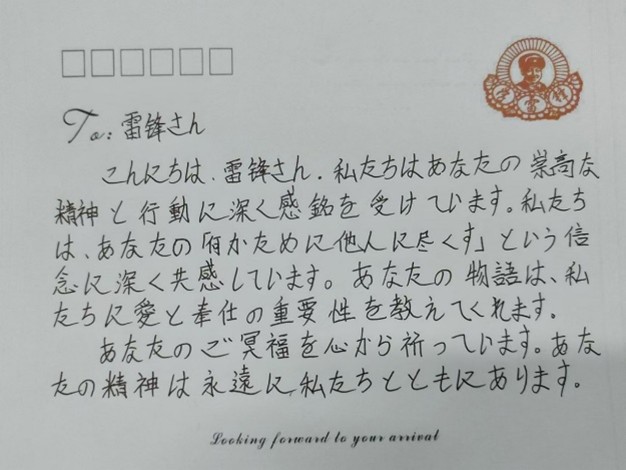 To: 雷锋さん
こんにちは、雷锋さん．私たちはあなたの崇高な
精神と行動に深く感銘を受けています。私たち
は、あなたの「何かために他人に尽くす」という信
念に深く共感しています。あなたの物語は、私
たちに愛と奉仕の重要性を教えてくれます。
あなたのご冥福を心から祈っています。あな
たの精神は永遠に私たちとともにあります。
Looking forward to your arrival